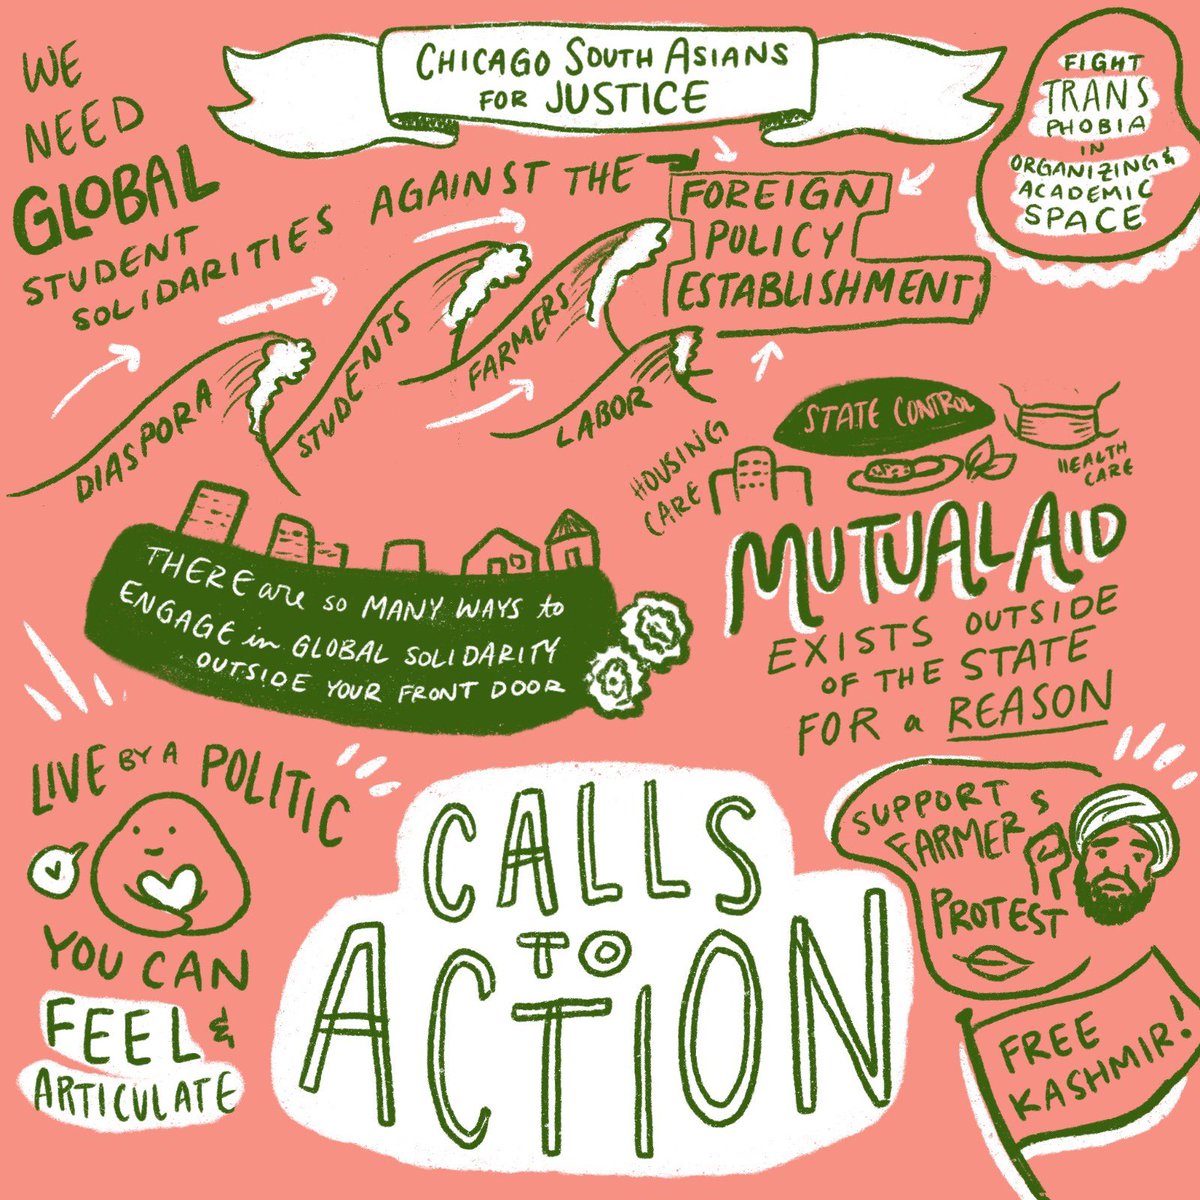 CHICAGO SOUTH ASIANS
FOR JUSTICE
WE
NEED
GLOBAL
STUDENT
SOLIDARITIES AGAINST THE
FOREIGN
POLICY
ESTABLISHMENT
FIGHT
TRANS
PHOBIA
IN
ORGANIZING &
ACADEMIC
SPACE
DIASPORA
STUDENTS
FARMERS
LABOR
HOUSING
CARE
STATE CONTROL
HEALTH
CARE
MUTUAL AID
EXISTS OUTSIDE
OF THE STATE
FOR a REASON
THERE are so MANY WAYS to
ENGAGE in GLOBAL SOLIDARITY
OUTSIDE YOUR FRONT DOOR
LIVE BY A POLITIC
YOU CAN
FEEL &
ARTICULATE
CALLS
TO
ACTION
SUPPORT
FARMER'S
PROTEST
FREE
KASHMIR!